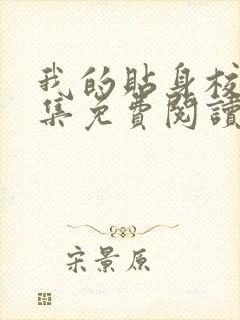 我的貼身校
集免費閱讀
宋景原